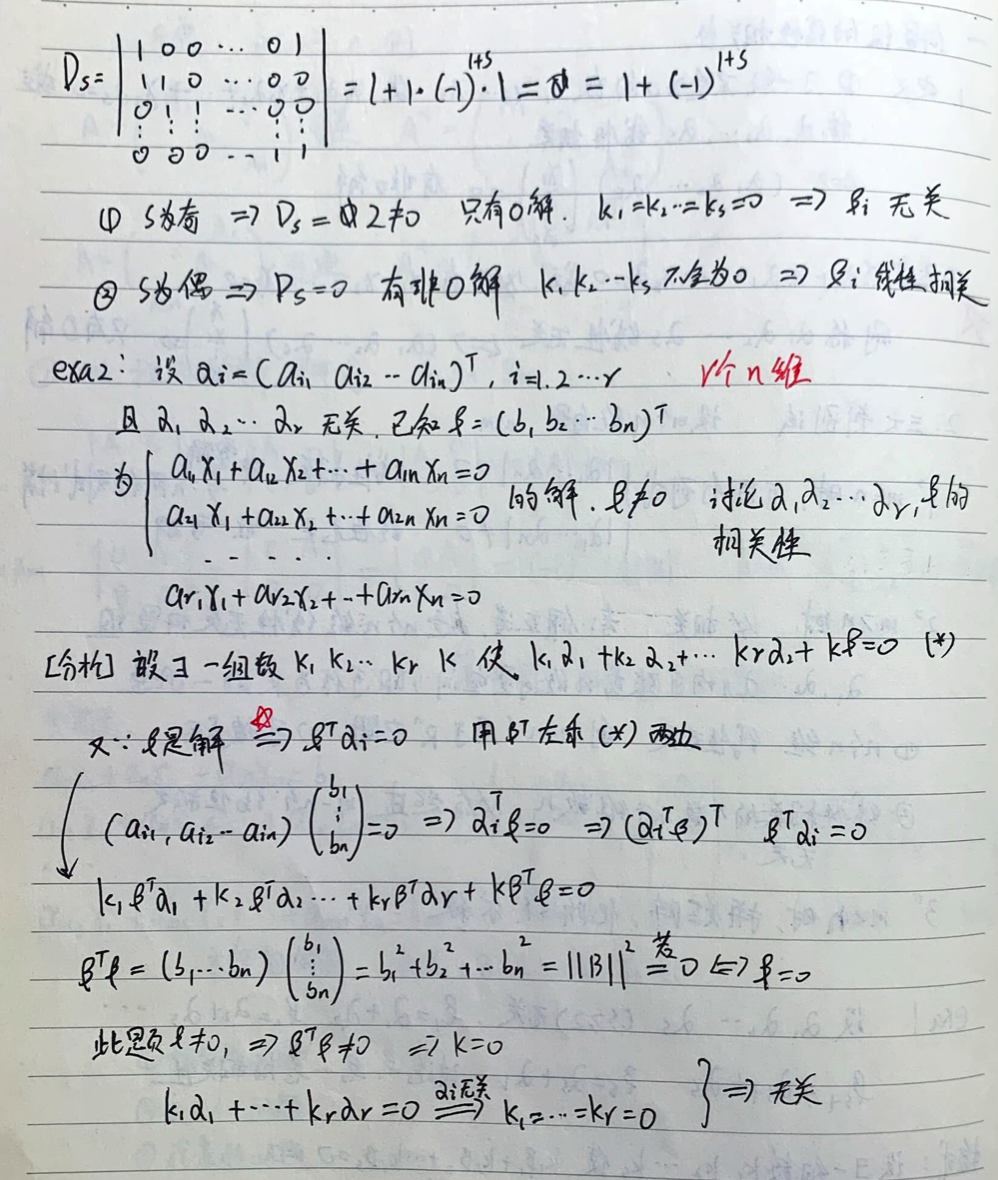 Ds = | 1 0 0 ··· 0 1 |
| 1 1 0 ··· 0 0 | = 1+1·(-1)^{1+s}·1 = = 1+(-1)^{1+s}
| 0 1 1 ··· 0 0 |
| ⋮ ⋮ ⋮ ⋮ ⋮ |
| 0 0 0 ·· 1 1 |
① S为奇 => Ds = 2≠0 只有0解. k₁=k₂··=ks=0 => βi 无关
② S为偶 => Ds=0 有非0解 k₁ k₂ ··· ks 不全为0 => βi 线性相关
exa2: 设 αi=(ai₁ ai₂ ·· ain)ᵀ, i=1.2···r r个n维
且 α₁ α₂ ·· αr 无关. 已知 β=(b₁ b₂ ··· bn)ᵀ
为 { a₁₁x₁+a₁₂x₂+···+a₁nxn=0
a₂₁x₁+a₂₂x₂+···+a₂nxn=0 的解. β≠0 讨论 α₁α₂···αr, β的
· · · · · 相关性
ar₁x₁+ar₂x₂+··+arnxn=0
[分析] 设∃一组数 k₁ k₂·· kr k 使 k₁α₁+k₂α₂+··· krα₂+kβ=0 (*)
又∵β是解 ☆=> βᵀαi=0 用βᵀ左乘(*)两边
(ai₁, ai₂ ·· ain) (b₁ ⋮ bn) =0 => αiᵀβ=0 => (αiᵀβ)ᵀ βᵀαi=0
k₁βᵀα₁+k₂βᵀα₂···+krβᵀαr+kβᵀβ=0
βᵀβ=(b₁···bn) (b₁ ⋮ bn) =b₁²+b₂²+···bn²=||β||² 若= 0 <=> β=0
此题β≠0, => βᵀβ≠0 => k=0
k₁α₁+···+krαr=0 αi无关=> k₁=···=kr=0 } => 无关